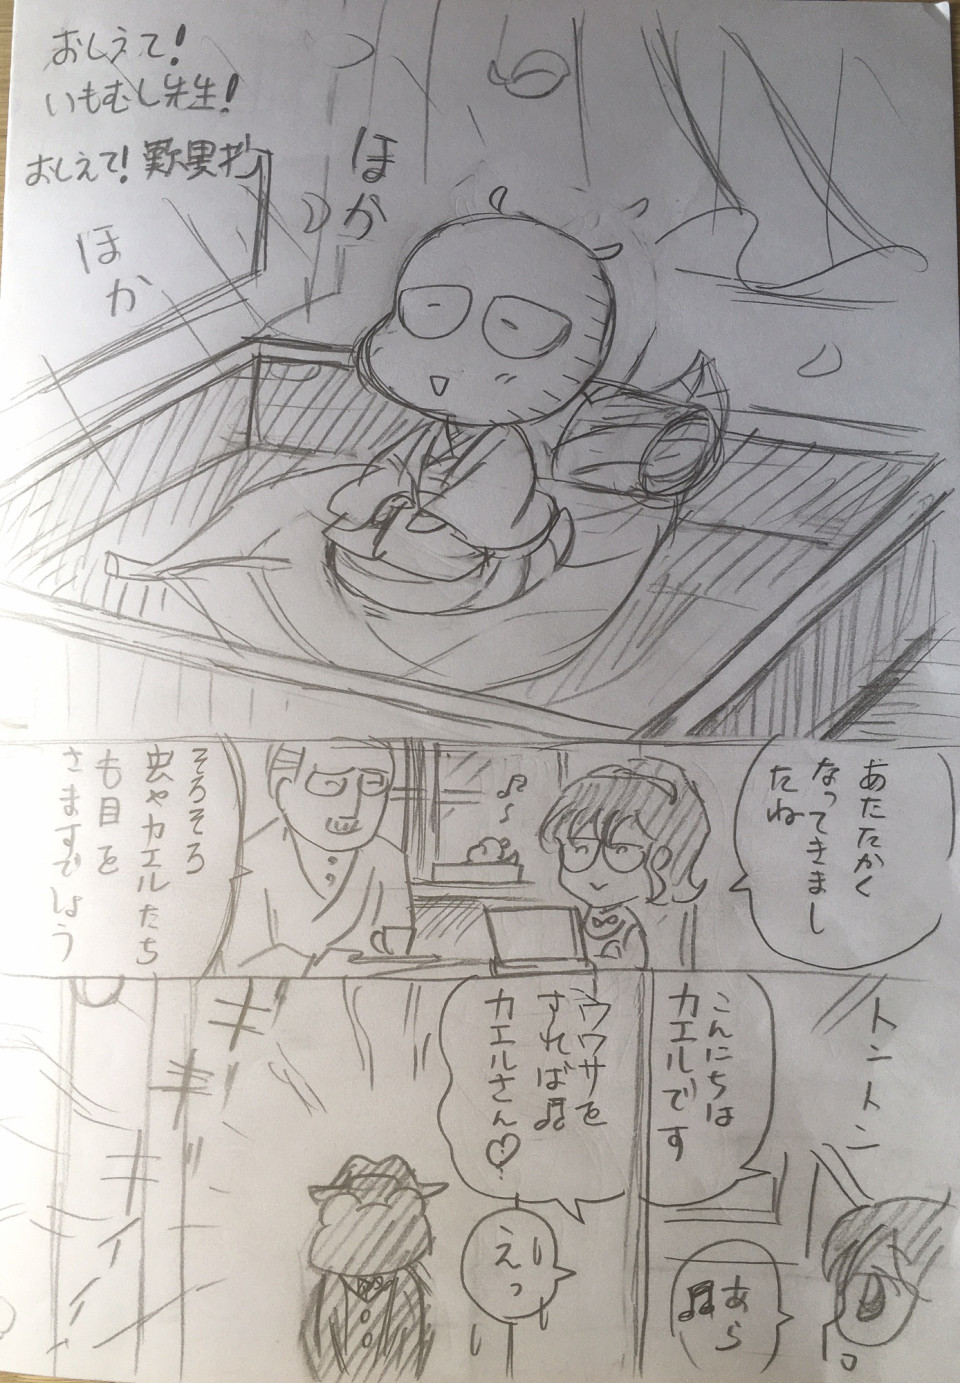 おしえて!
いもむし先生!
おしえて!
ほか
ほか
あたたかく
なってきまし
たね
そろそろ
虫やカエルたち
も目を
さますでしょう
トントン
こんにちは
カエルです
ウワサを
すれば♬
カエルさん♡
あら
♬
えっ